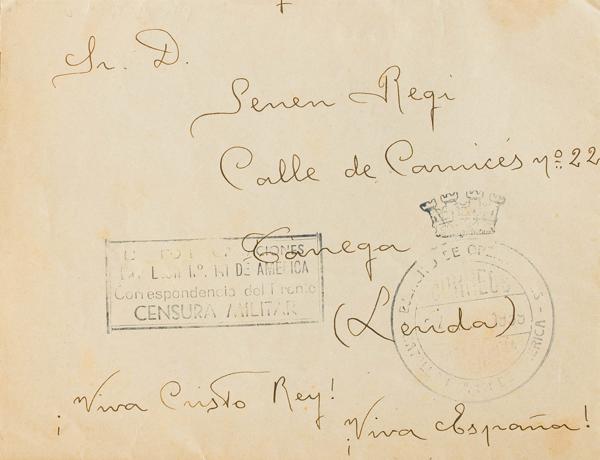 Sr. D.
Senen Regi
Calle de Carnicés nº. 22
Tanega
(Lerida)
CIONES
DE AMERICA
Correspondencia del Frente
CENSURA MILITAR
DE
CORREOS
¡Viva Cristo Rey!
¡Viva España!